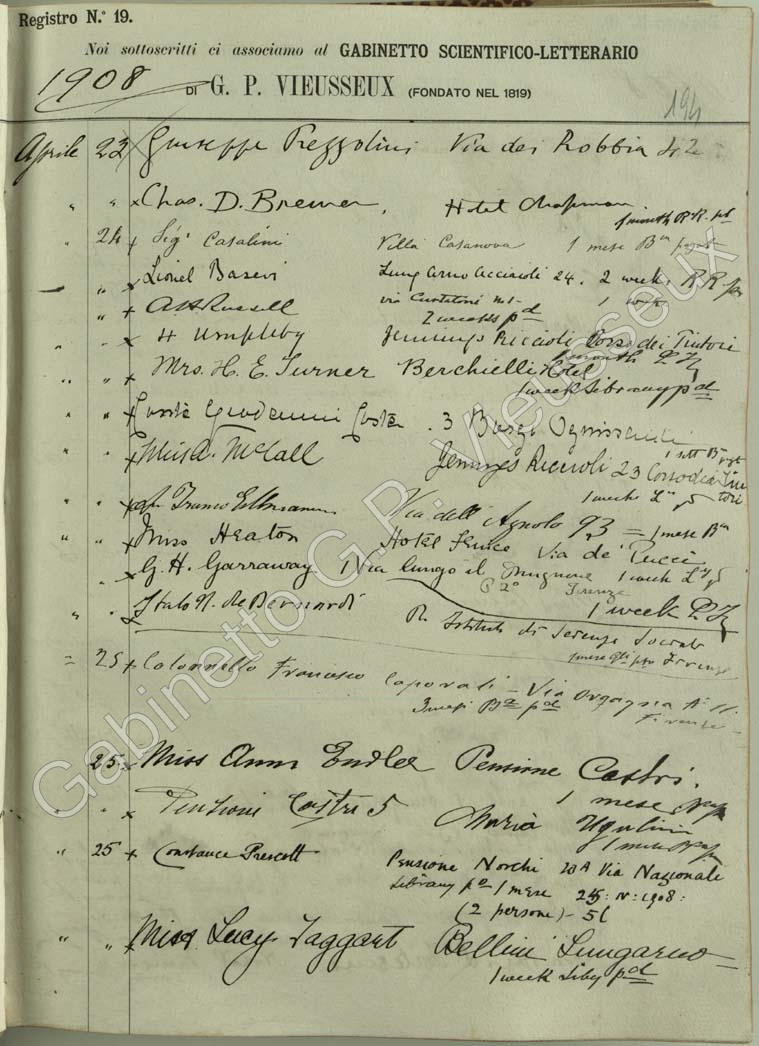 Registro N.° 19.
Noi sottoscritti ci associamo al GABINETTO SCIENTIFICO-LETTERARIO
1908
DI G. P. VIEUSSEUX (FONDATO NEL 1819)
194
Aprile 23 Giuseppe Prezzolini Via dei Robbia 42
" " Chas. D. Brewer, Hotel Chapman
1 month R.R. pd
" 24 Sigr Casalini Villa Casanova 1 mese
" Lionel Basevi Lung Arno Acciaioli 24. 2 weeks R R
" " A H Russell via
2 weeks pd
" H Umpleby Jennings Riccioli Corso dei Tintori
1 month
" " Mrs. H. E. Turner Berchielli Hotel
1 week Library pd
" " Giovanni Costa . 3 Borgo Ognissanti
" " Miss A. McCall Jennings Riccioli 23 Corso dei Tintori
1 week
" " Franco Via dell'Agnolo 93 = 1 mese
" " Miss Heaton Hotel Fenice Via de' Pucci
" G. H. Garraway 1 Via lungo il Mugnone 1 week
P 2° Firenze
1 week
" " Italo N. de Bernardi R. Istituto di Scienze Sociali
Firenze
= 25 Colonnello Francesco Caporali - Via Orgagna
3 mesi pd Firenze
25 Miss Ann Endler Pensione Castri.
1 mese
" Pensione Castri 5 Maria Ugolini
1 mese
" 25 Constance Prescott Pensione Norchi 20A Via Nazionale
Library pd 1 mese 25: IV: 1908:
(2 persone) - 5l
" " Miss Lucy Taggart Bellini Lungarno
1 week Liby pd
Gabinetto G.P. Vieusseux